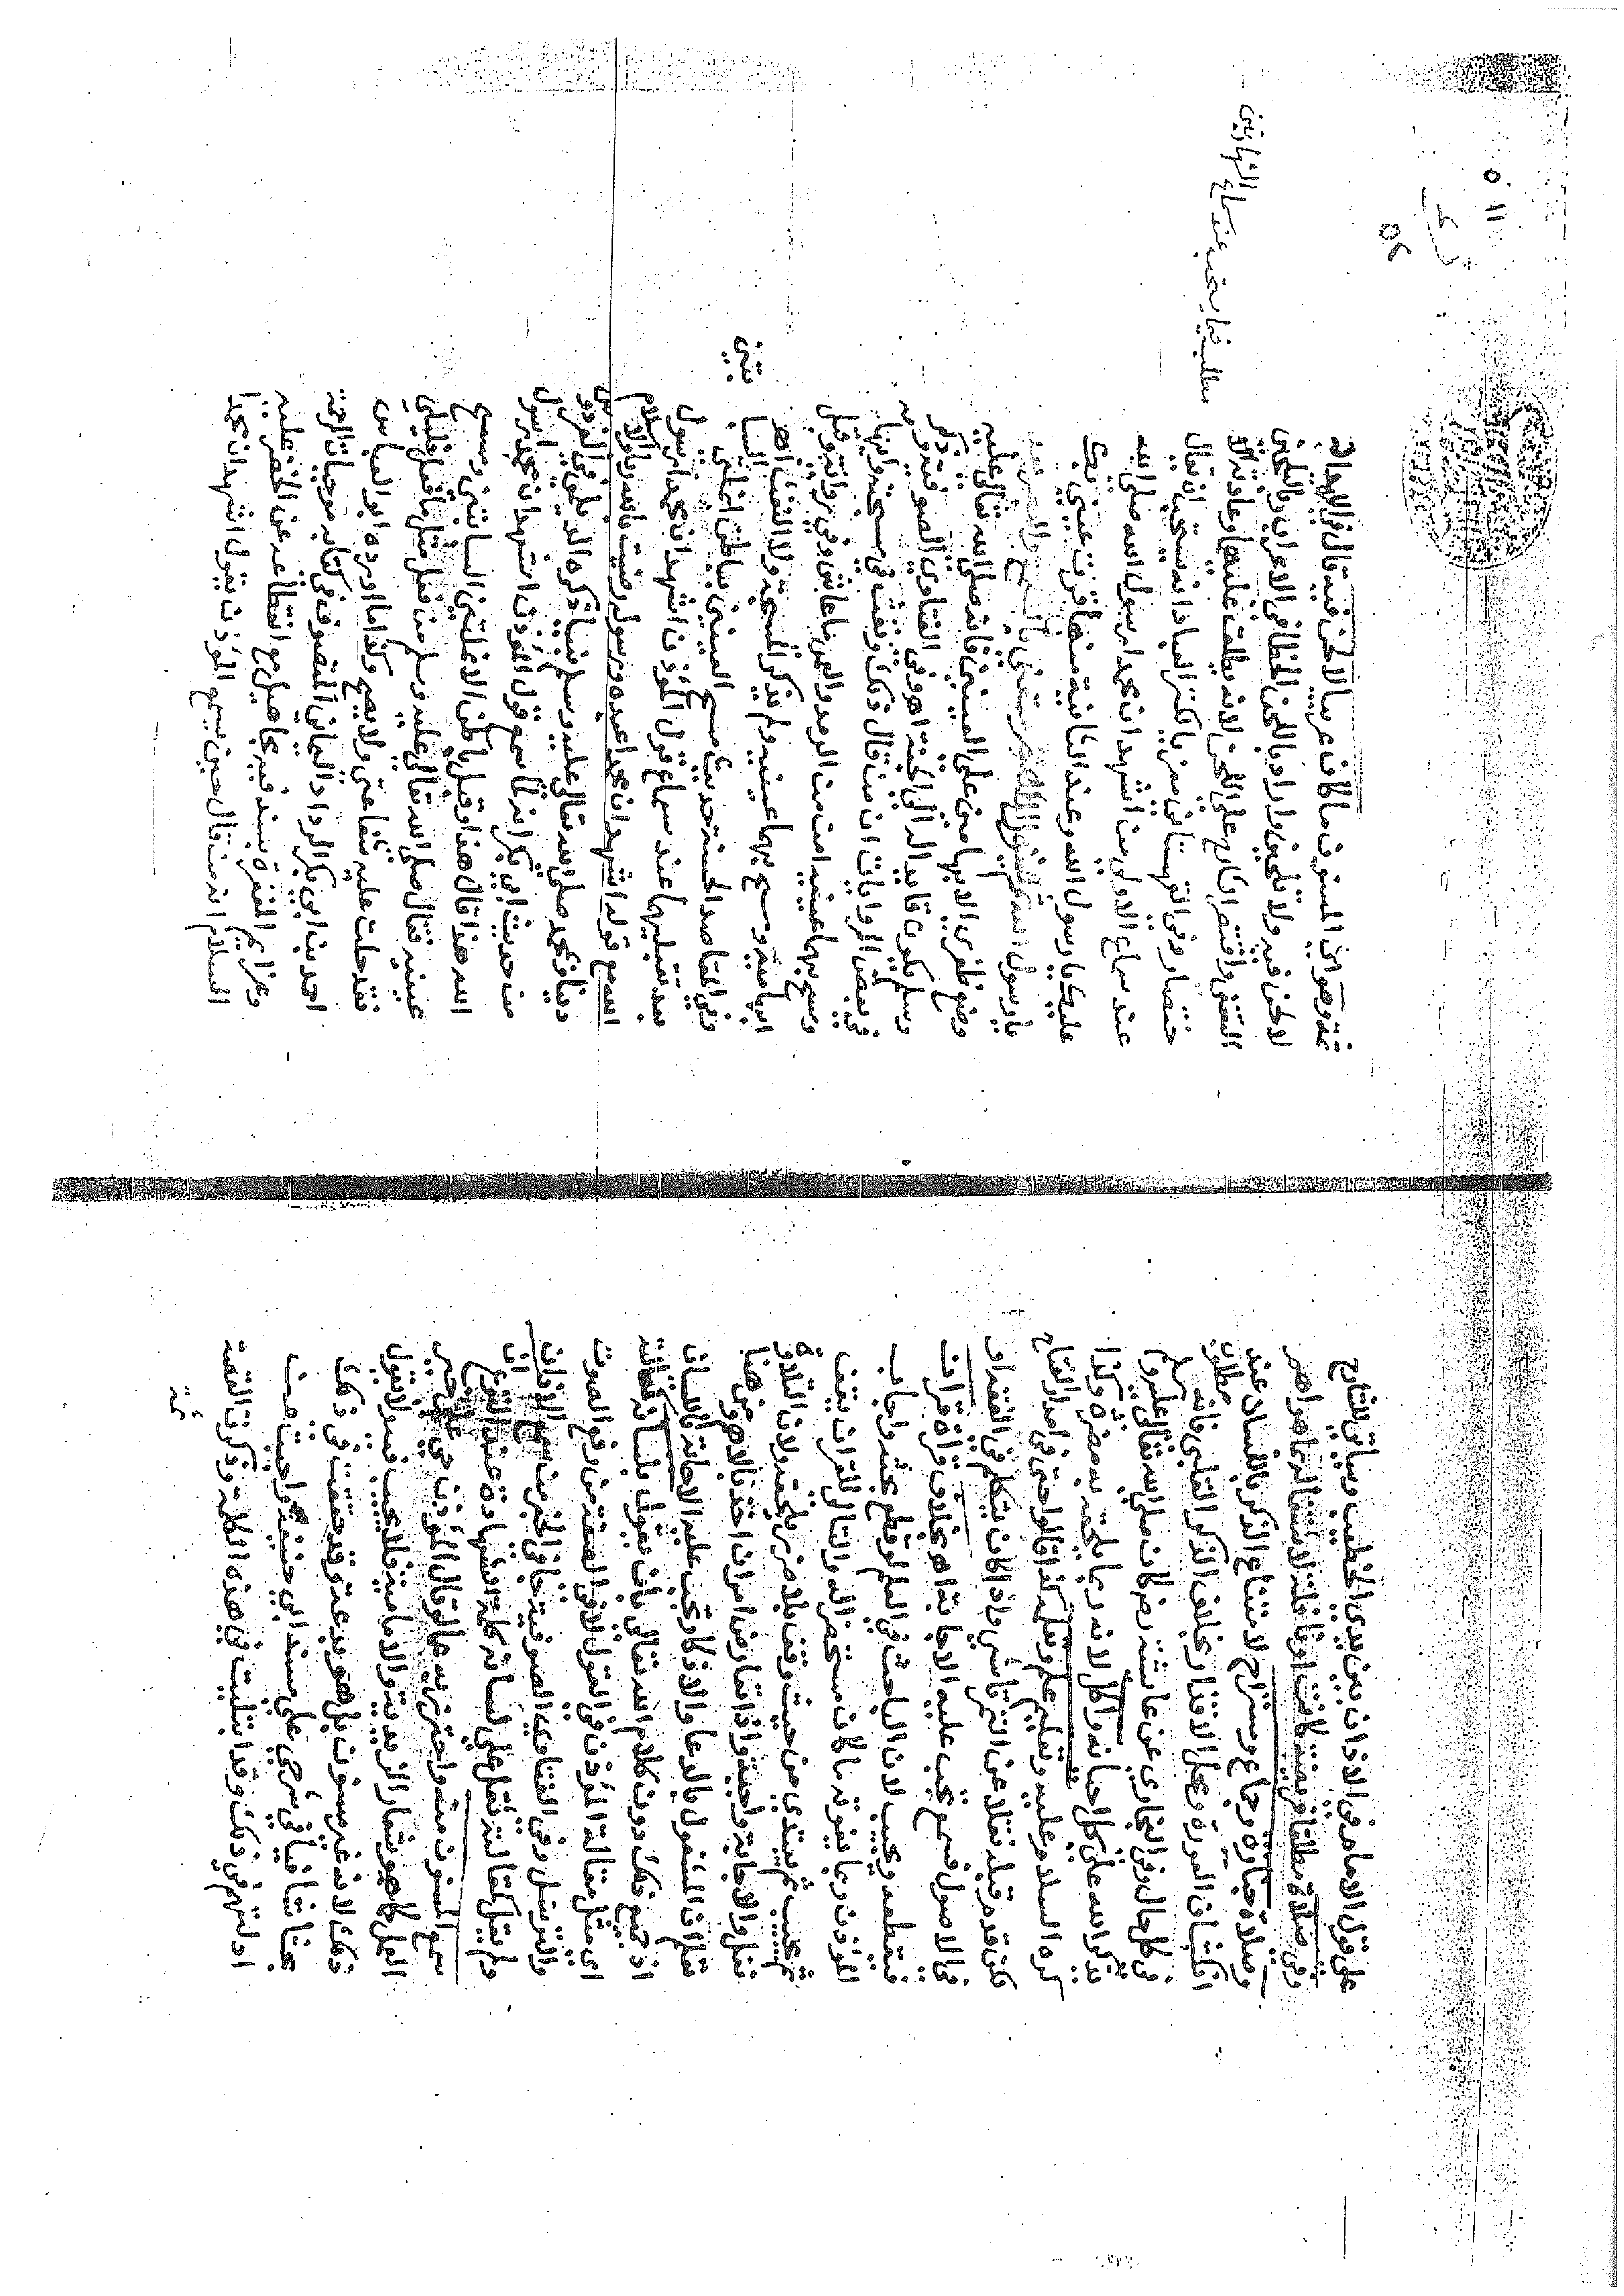 على قول الامام في الاذان بين يدي الخطيب وسياتي للشارح
وفي صلاة مطلقا فريضة كانت او نافلة لاشتغاله بما هو اهم
وصلاة جنازة وجماع ومستراح لامتناع الذكر باللسان عند
انكشاف العورة ومحل الاقذار بخلاف الذكر القلبي فانه مطلوب
في كل حال وفي البخاري عن عائشة رضي كان صلى الله تعالى عليه وسلم
يذكر الله على كل احيانه واكل لانه ربما يلحقه به مضرة وكذا
كره السلام عليه وتعليم علم وتعلمه كذا قالوا حتى في امداد الفتاح
لكن قدم قبله نقلا عن التمرتاشي واذا كان يتكلم في الفقه او
في الاصول فسمع تجب عليه الاجابة اه بخلاف قراة قران
فيقطعه ويجيب لان الباحث في العلم لو قطع بحثه واجاب
المؤذن ربما يفوته ما كان مستحضرا له والتالي للقران يقف
ثم يجيب ثم يبتدي من حيث وقف بلا ضرر يلحقه ولان التلاوة
نفل والاجابة واجبة واذا تعارض امران اخذ بالاهم ومن هنا
نعلم ان المشغول بالدعا والاذكار تجب عليه الاجابة باللسان
اذ يجمع ذلك دون كلام الله تعالى بان يقول بلسانه كمقالته
اي مثل مقالة المؤذن في القول لا في الصفة من رفع الصوت
والترسل وفي الفتاوى الصوفية جا في الخبر من سمع الاذان
ولم يقل كمقالته ثقل على لسانه كلمة الشهادة عند النزع ان
سمع المسنون منه واحترز به عما لو قال المؤذن حي على خير
العمل كما هو شعار الزيدية والامامية فلا يجيب فيه ولا يقول
ذلك لانه غير مسنون بل هو بدعة وقد حققت في ذلك
بحثا شافيا في شرحي على مسند ابي حنيفة واجبت عن
ادلتهم في ذلك وقد ابتليت في هذه الكلمة وذكرت القصة
ثمة
ثمة وهو اي المسنون ما كان عربيا لا لحن فيه قال في الامداد
لا لحن فيه ولا تلحين واراد باللحن الخطا في الاعراب وبالتلحين
التغني واقتصر الشارح على اللحن لانه يطلق عليهما وعادته الا
ختصار وفي القهستاني معزيا لكنز العباد انه يستحب ان يقال
عند سماع الاولى من اشهد ان محمدا رسول الله صلى الله
عليك يا رسول الله وعند الثانية منها قرت عيني بك
يا رسول الله ثم يقول اللهم متعني بالسمع والبصر بعد
وضع ظفري الابهامين على العينين فانه صلى الله تعالى عليه
وسلم يكون قايدا له الى الجنة اه وفي الفتاوى الصوفية وذكر
في بعض الروايات ان من قال ذلك ونفث في مسبحته وابهامه
ومسح بهما عينيه امن من الرمد والعمى ما عاش وفي رواية وقبل
ابهاميه ومسح بهما عينيه ولم يذكر المسبحة ولا النفث اه
وفي المقاصد الحسنة حديث مسح العينين بباطن انملتي السبابتين
بعد تقبيلهما عند سماع قول المؤذن اشهد ان محمدا رسول
الله مع قوله اشهد ان محمدا عبده ورسوله رضيت بالله ربا وبالاسلام
دينا وبمحمد صلى الله تعالى عليه وسلم نبيا ذكره الديلمي في الفردوس
من حديث ابي بكر انه لما سمع قول المؤذن اشهد ان محمدا رسول
الله هذا قال هذا وقبل باطن الانملتين السبابتين ومسح
عينيه فقال صلى الله تعالى عليه وسلم من فعل مثل ما فعل خليلي
فقد حلت عليه شفاعتي ولا يصح وكذا ما اورده ابو العباس
احمد بن ابي بكر الرداد اليماني المتصوف في كتابه موجبات الرحمة
وعزايم المغفرة بسند فيه مجاهيل مع انقطاعه عن الخضر عليه
السلام انه من قال حين يسمع المؤذن يقول اشهد ان محمدا
مطلب فيما يستحب عند سماع الشهادتين